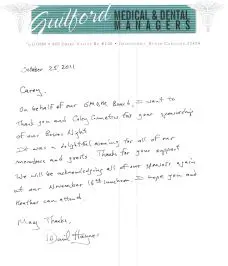 Guilford MEDICAL & DENTAL
MANAGERS
October 25 2011
Carey,
On behalf of our GMDM Board, I want to
thank you and Coley for your sponsorship
of our Bosses Night
It was a delightful evening for all of our
members and guests Thanks for your support
We will be acknowledging all of our sponsors again
at our November 16th luncheon I hope you and
Heather can attend
Many Thanks,